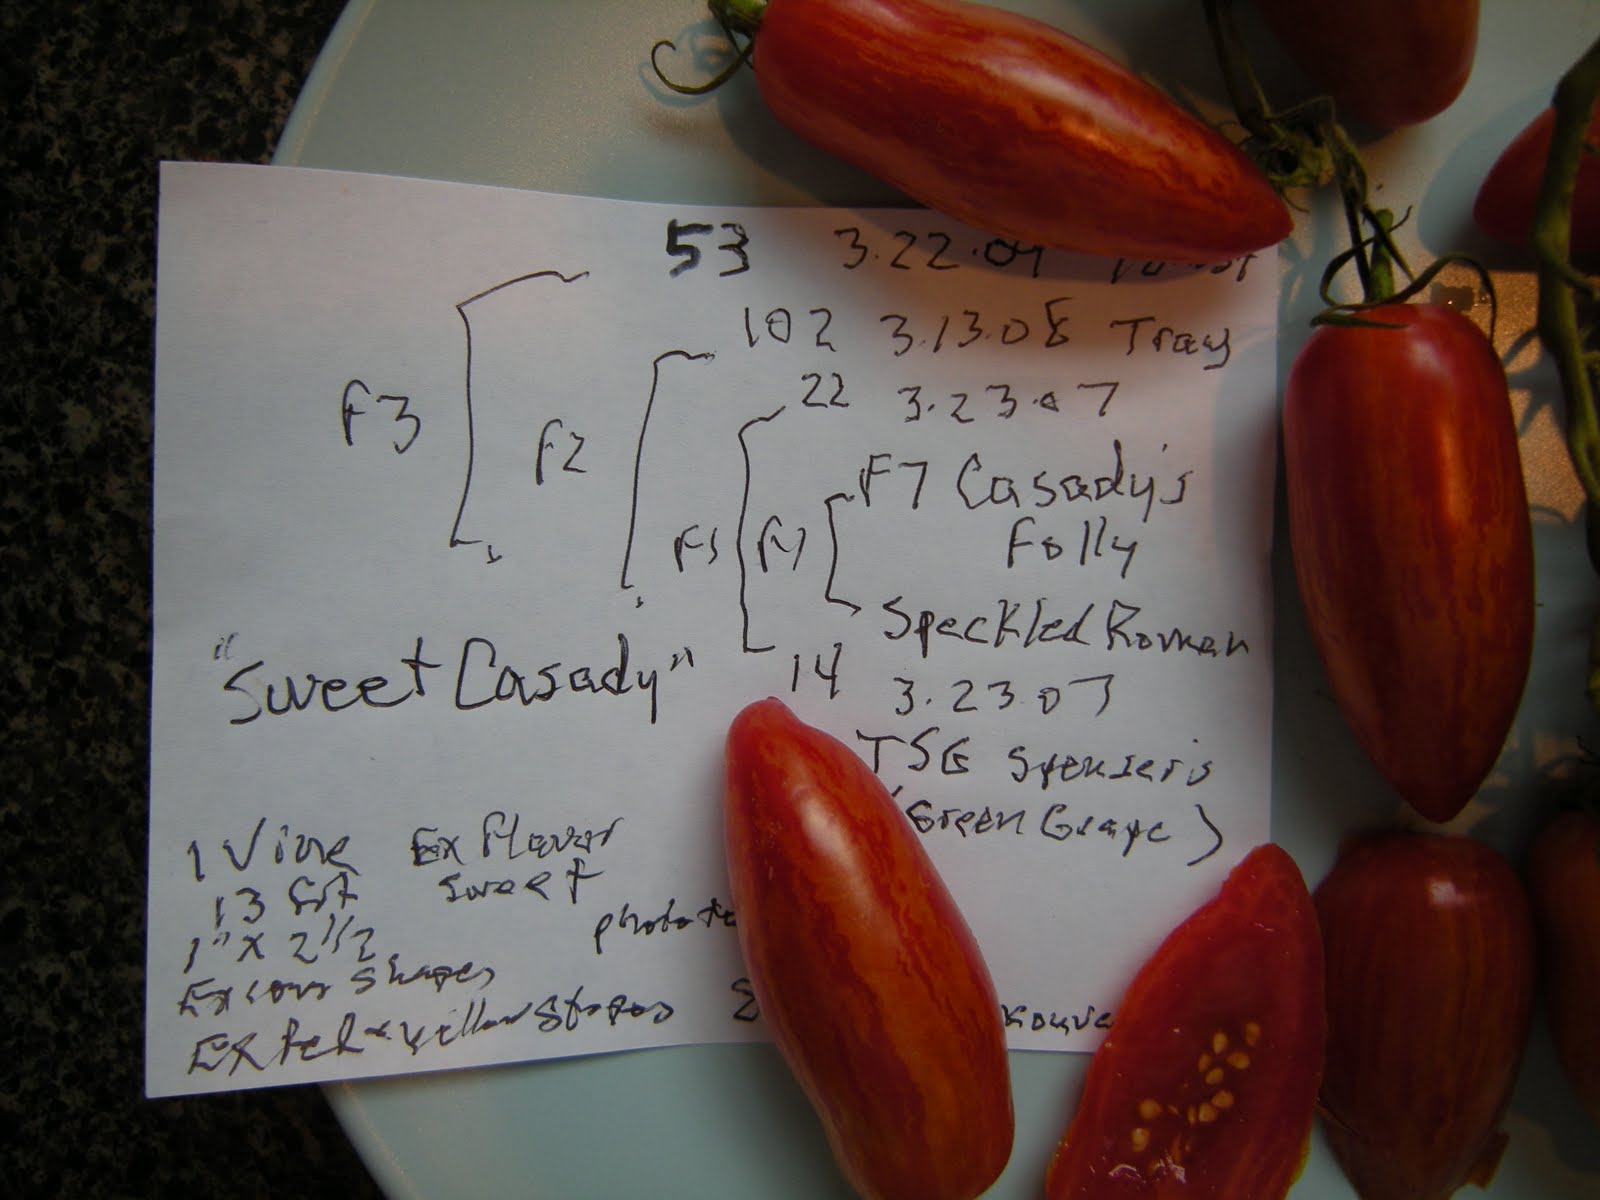 53 3.22.09
102 3.13.08 Tray
22 3.23.07
F3
F2
F1
F7 Casady's
Folly
Speckled Roman
14 3.23.07
"Sweet Casady"
TSG Spenser's
(Green Grape)
1 Vine Ex Flavor
13 fr't sweet
1" x 2 1/2
Ex long shapes
Ex Red & yellow stripes